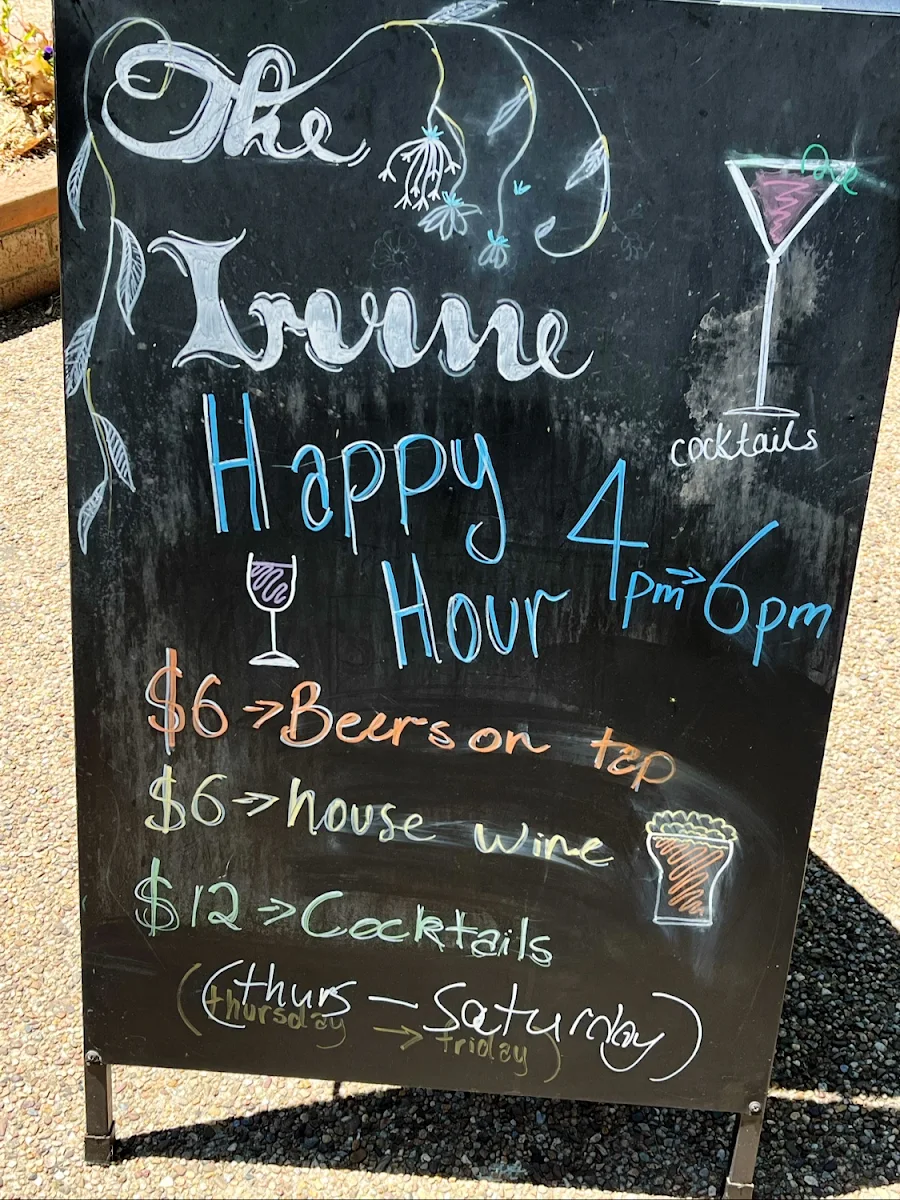 The
Irvine
cocktails
Happy
Hour
4pm → 6pm
$6 → Beers on tap
$6 → house wine
$12 → Cocktails
(thurs — Saturday)
(thursday → friday)